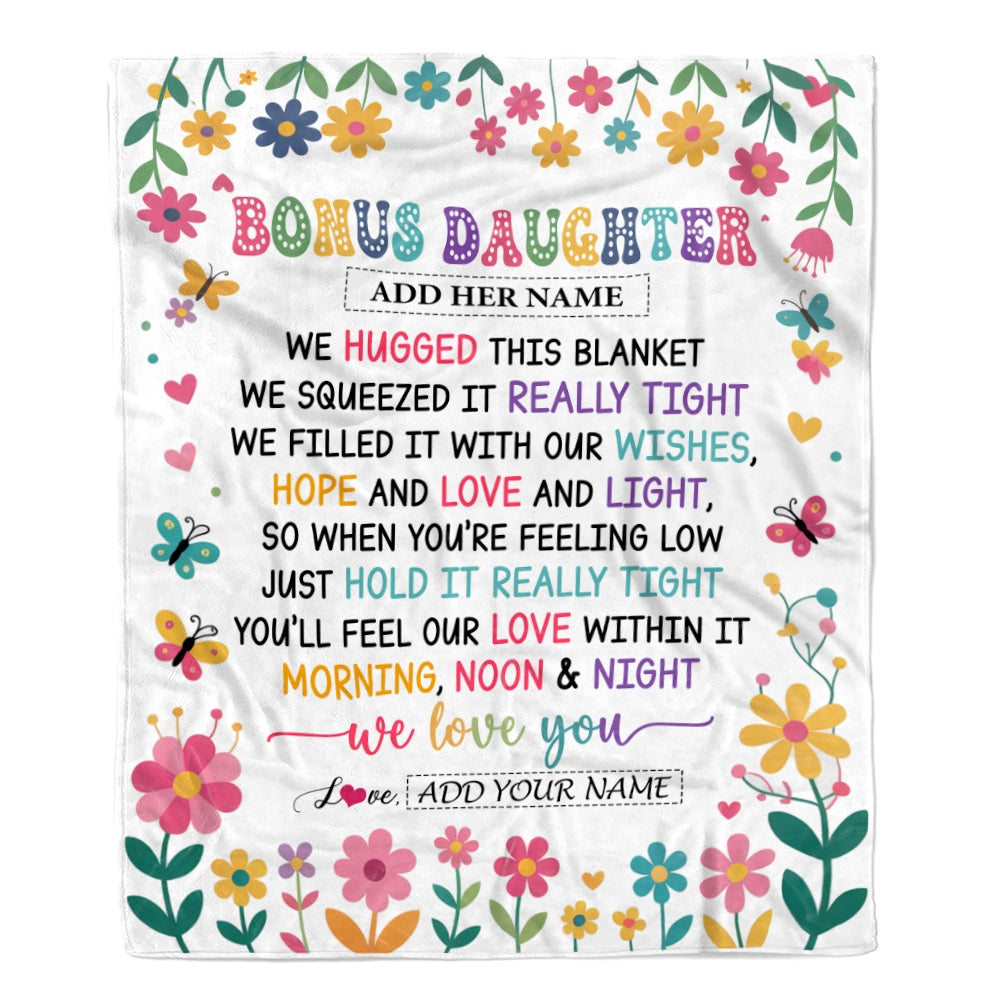 BONUS DAUGHTER
ADD HER NAME
WE HUGGED THIS BLANKET
WE SQUEEZED IT REALLY TIGHT
WE FILLED IT WITH OUR WISHES,
HOPE AND LOVE AND LIGHT,
SO WHEN YOU'RE FEELING LOW
JUST HOLD IT REALLY TIGHT
YOU'LL FEEL OUR LOVE WITHIN IT
MORNING, NOON & NIGHT
we love you
Love, ADD YOUR NAME